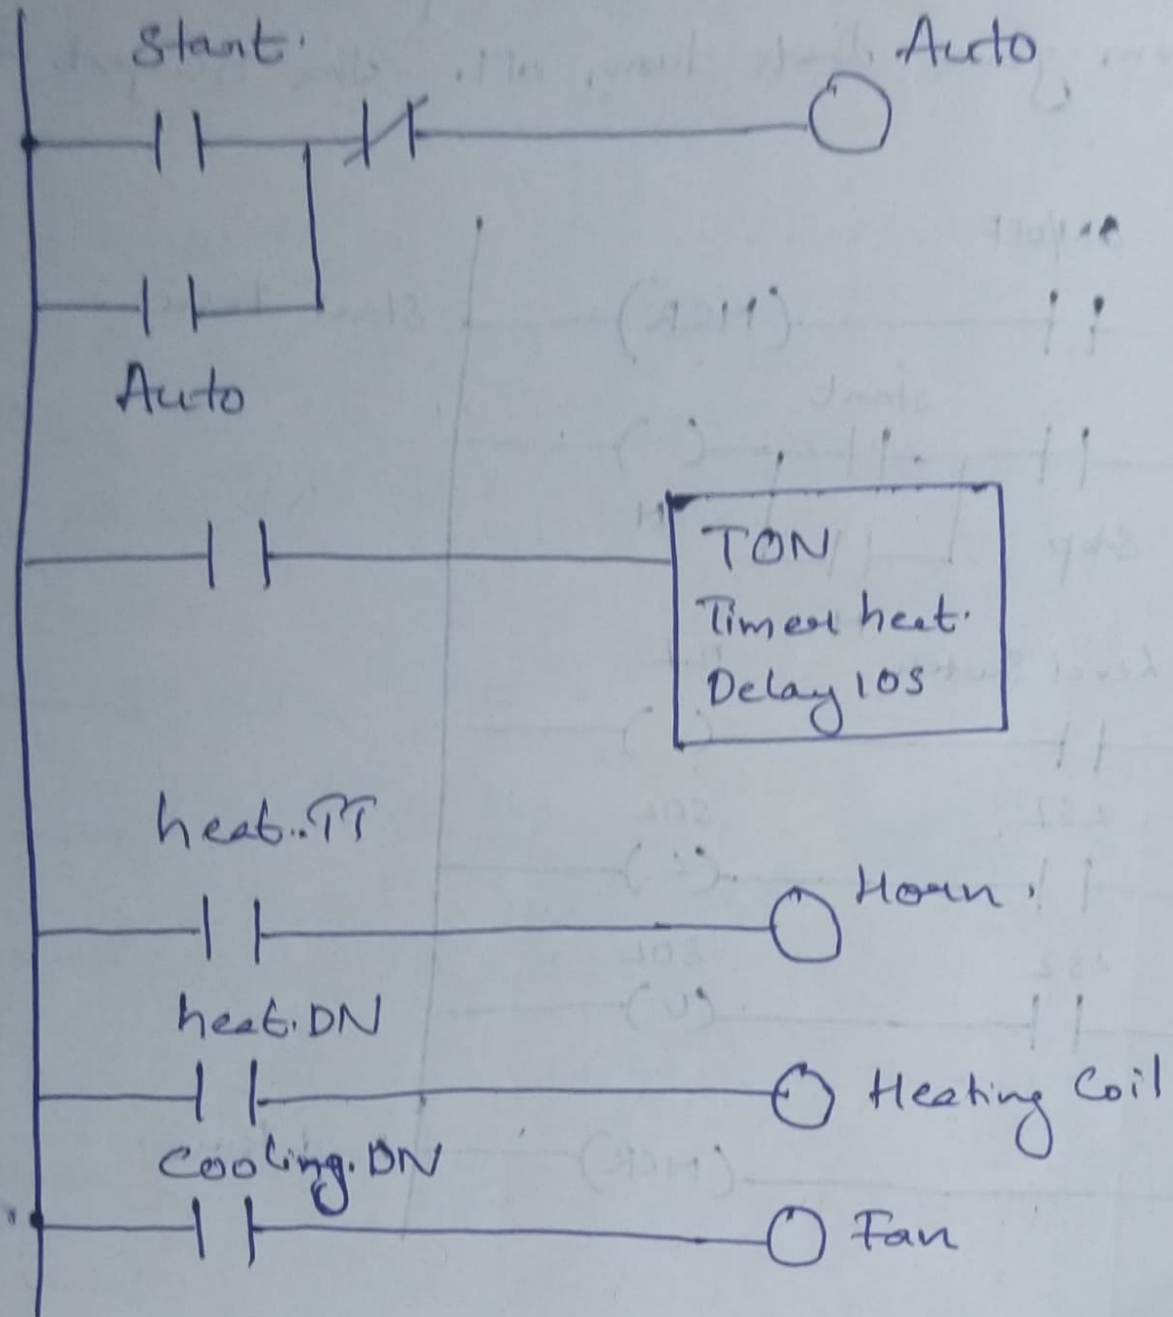 Start.
Auto
Auto
TON
Timer heat.
Delay 10S
heat.TT
Horn.
heat.DN
Heating Coil
Cooling.DN
Fan